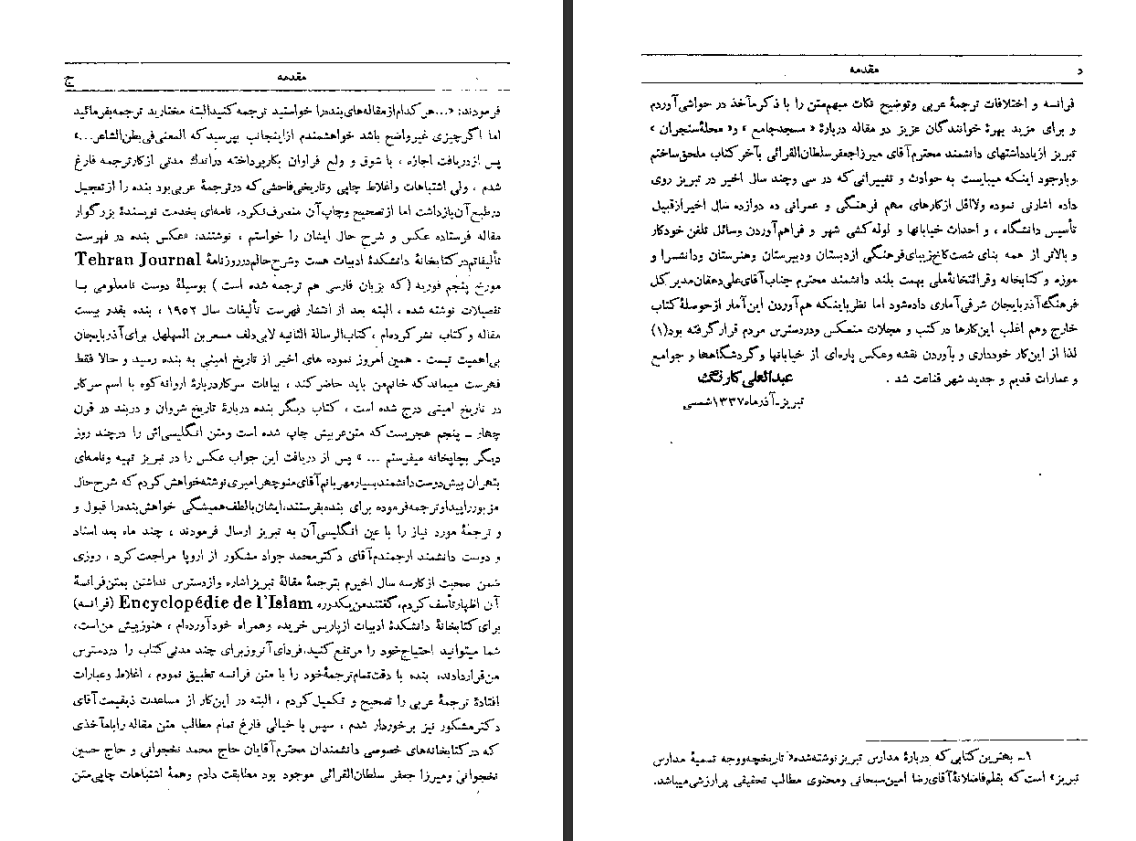 مقدمه
ج
فرمودند: «...هر کدام از مقاله‌های بنده را خواستید ترجمه کنید البته مختارید ترجمه بفرمائید
اما اگر چیزی غیر واضح باشد خواهشمندم از اینجانب بپرسید که المعنی فی بطن الشاعر...»
پس از دریافت اجازه ، با شوق و ولع فراوان بکار پرداخته در اندك مدتی از کار ترجمه فارغ
شدم ، ولی اشتباهات و اغلاط چاپی و تاریخی فاحشی که در ترجمهٔ عربی بود بنده را از تعجیل
در طبع آن بازداشت اما از تصحیح و چاپ آن منصرف نکرد. نامه‌ای بخدمت نویسندهٔ بزرگوار
مقاله فرستاده عکس و شرح حال ایشان را خواستم ، نوشتند: «عکس بنده در فهرست
تألیفاتم در کتابخانهٔ دانشکدهٔ ادبیات هست و شرح حالم در روزنامهٔ Tehran Journal
مورخ پنجم فوریه (که بزبان فارسی هم ترجمه شده است ) بوسیلهٔ دوست نامعلومی با
تفصیلات نوشته شده ، البته بعد از انتشار فهرست تألیفات سال ۱۹۵۲ ، بنده بقدر بیست
مقاله و کتاب نشر کرده‌ام ، کتاب الرسالة الثانیه لابی دلف مسعر بن المهلهل برای آذربایجان
بی‌اهمیت نیست . همین امروز نموده های اخیر از تاریخ امینی به بنده رسید و حالا فقط
فهرست میماند که خانم من باید حاضر کند ، بیانات سرکار دربارهٔ اروانه کوه با اسم سرکار
در تاریخ امینی درج شده است ، کتاب دیگر بنده دربارهٔ تاریخ شروان و دربند در قرن
چهار ـ پنجم هجریست که متن عربیش چاپ شده است و متن انگلیسی‌اش را در چند روز
دیگر بچاپخانه میفرستم ... » پس از دریافت این جواب عکس را در تبریز تهیه و نامه‌ای
بتهران پیش دوست دانشمند بسیار مهربانم آقای منوچهر امیری نوشته خواهش کردم که شرح حال
مزبور را پیدا و ترجمه فرموده برای بنده بفرستند، ایشان با لطف همیشگی خواهش بنده را قبول و
و ترجمهٔ مورد نیاز را با عین انگلیسی آن به تبریز ارسال فرمودند ، چند ماه بعد استاد
و دوست دانشمند ارجمندم آقای دکتر محمد جواد مشکور از اروپا مراجعت کرد ، روزی
ضمن صحبت از کار سه سال اخیرم بترجمهٔ مقالهٔ تبریز اشاره و از دسترس نداشتن بمتن فرانسهٔ
آن اظهار تأسف کردم، گفتند من یکدوره Encyclopédie de l'Islam (فرانسه)
برای کتابخانهٔ دانشکدهٔ ادبیات از پاریس خریده و همراه خود آورده‌ام ، هنوز پیش من است،
شما میتوانید احتیاج خود را مرتفع کنید، فردای آنروز برای چند مدتی کتاب را در دسترس
من قرار دادند، بنده با دقت تمام ترجمهٔ خود را با متن فرانسه تطبیق نمودم ، اغلاط و عبارات
افتادهٔ ترجمهٔ عربی را تصحیح و تکمیل کردم ، البته در این کار از مساعدت ذیقیمت آقای
دکتر مشکور نیز برخوردار شدم ، سپس با خیالی فارغ تمام مطالب متن مقاله را با مآخذی
که در کتابخانه‌های خصوصی دانشمندان محترم آقایان حاج محمد نخجوانی و حاج حسین
نخجوانی و میرزا جعفر سلطان القرائی موجود بود مطابقت دادم و همهٔ اشتباهات چاپی متن
مقدمه
د
فرانسه و اختلافات ترجمهٔ عربی و توضیح نکات مبهم متن را با ذکر مآخذ در حواشی آوردم
و برای مزید بهرهٔ خوانندگان عزیز دو مقاله دربارهٔ « مسجد جامع » و« محلهٔ سنجران »
تبریز از یادداشتهای دانشمند محترم آقای میرزا جعفر سلطان القرائی بآخر کتاب ملحق ساختم
و باوجود اینکه میبایست به حوادث و تغییراتی که در سی و چند سال اخیر در تبریز روی
داده اشارتی نموده ولااقل از کارهای مهم فرهنگی و عمرانی ده دوازده سال اخیر از قبیل
تأسیس دانشگاه ، و احداث خیابانها و لوله کشی شهر و فراهم آوردن وسائل تلفن خودکار
و بالاتر از همه بنای شصت کاخ زیبای فرهنگی از دبستان و دبیرستان و هنرستان و دانشسرا و
موزه و کتابخانه و قرائتخانهٔ ملی بهمت بلند دانشمند محترم جناب آقای علی دهقان مدیر کل
فرهنگ آذربایجان شرقی آماری داده شود اما نظر باینکه هم آوردن این آمار از حوصلهٔ کتاب
خارج و هم اغلب این کارها در کتب و مجلات منعکس و در دسترس مردم قرار گرفته بود(۱)
لذا از این کار خودداری و بآوردن نقشه و عکس پاره‌ای از خیابانها و گردشگاهها و جوامع
و عمارات قدیم و جدید شهر قناعت شد .
عبدالعلی کارنگ
تبریزـ آذرماه ۱۳۳۷ شمسی
۱ـ بهترین کتابی که دربارهٔ مدارس تبریز نوشته شده« تاریخچه و وجه تسمیهٔ مدارس
تبریز» است که بقلم فاضلانهٔ آقای رضا امین سبحانی و محتوی مطالب تحقیقی پر ارزشی میباشد.